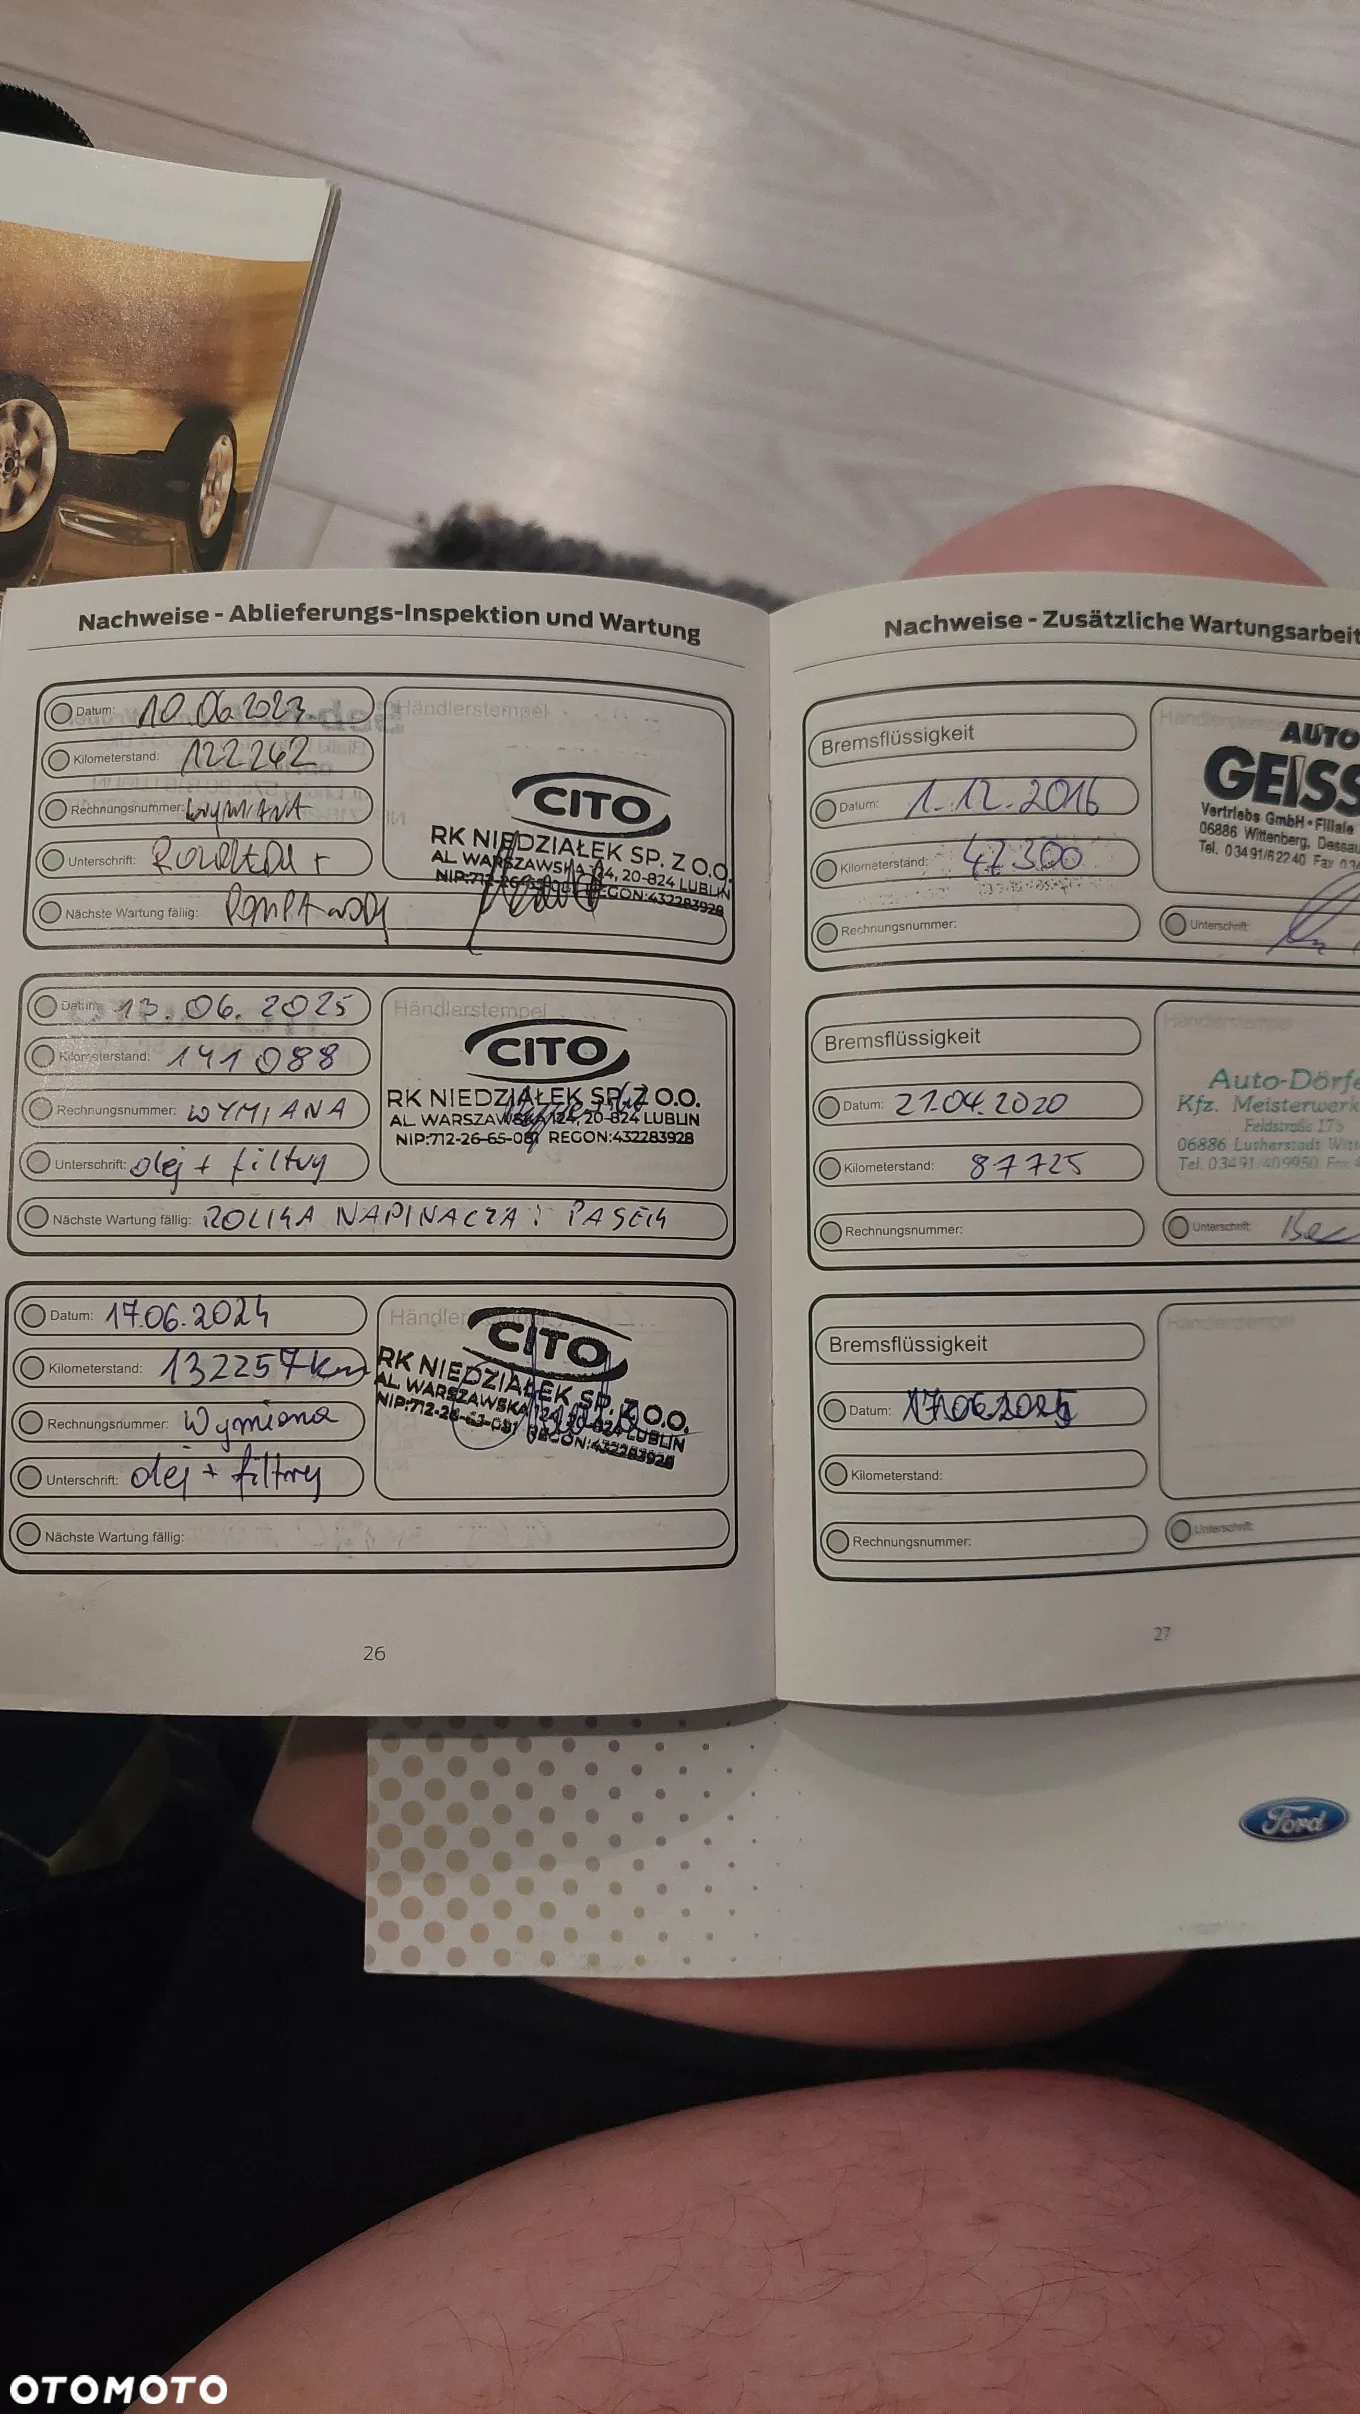 Nachweise - Ablieferungs-Inspektion und Wartung
Datum: 10.06.2023
Kilometerstand: 122242
Rechnungsnummer: WYMIANA
Unterschrift: ROZRZĄDU +
Nächste Wartung fällig: POMPA WODY
Händlerstempel
CITO
RK NIEDZIAŁEK SP. Z O.O.
AL. WARSZAWSKA 124, 20-824 LUBLIN
NIP:712-26-65-081 REGON:432283928
Datum: 13.06.2025
Kilometerstand: 141 088
Rechnungsnummer: WYMIANA
Unterschrift: olej + filtry
Nächste Wartung fällig: ROLKA NAPINACZA i PASEK
Händlerstempel
CITO
RK NIEDZIAŁEK SP. Z O.O.
AL. WARSZAWSKA 124, 20-824 LUBLIN
NIP:712-26-65-081 REGON:432283928
Datum: 17.06.2024
Kilometerstand: 132257 km
Rechnungsnummer: Wymiana
Unterschrift: olej + filtry
Nächste Wartung fällig:
CITO
RK NIEDZIAŁEK SP. Z O.O.
AL. WARSZAWSKA 124, 20-824 LUBLIN
NIP:712-26-65-081 REGON:432283928
26
Nachweise - Zusätzliche Wartungsarbeit
Bremsflüssigkeit
Datum: 1.12.2016
Kilometerstand: 47300
Rechnungsnummer:
AUTO
GEISS
Vertriebs GmbH • Filiale
06886 Wittenberg, Dessau
Tel. 03491/62240 Fax
Unterschrift:
Bremsflüssigkeit
Datum: 21.04.2020
Kilometerstand: 87725
Rechnungsnummer:
Händlerstempel
Auto-Dörf
Kfz. Meisterwerk
Feldstraße 175
06886 Lutherstadt Witt
Tel. 03491/409950 Fax
Unterschrift:
Bremsflüssigkeit
Datum: 17.06.2025
Kilometerstand:
Rechnungsnummer:
Händlerstempel
Unterschrift:
27
Ford
OTOMOTO